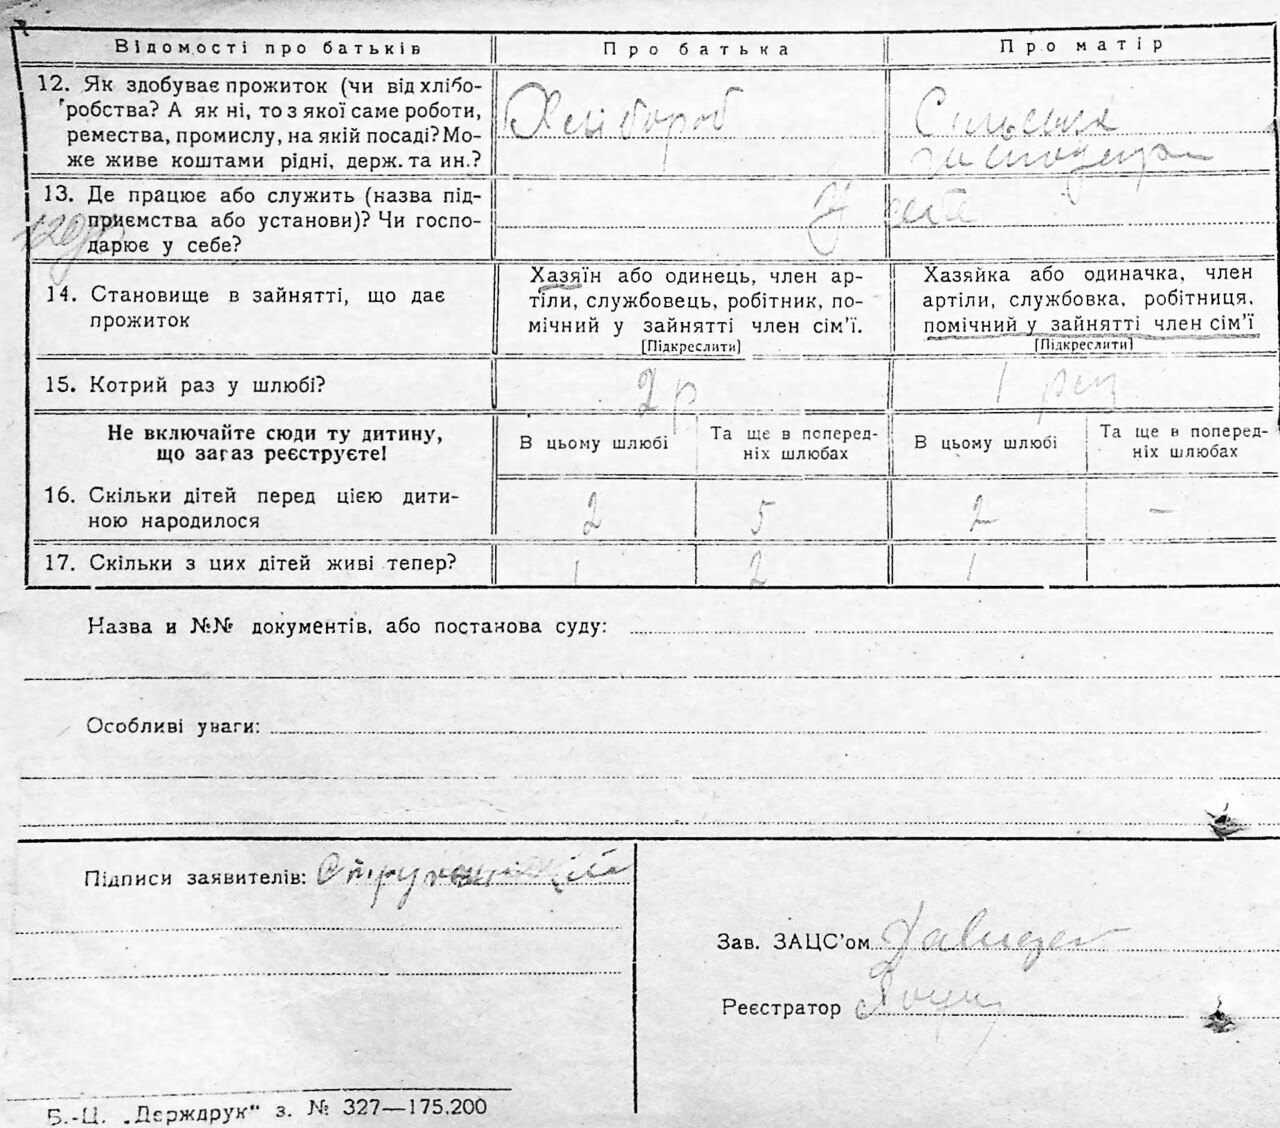 Відомості про батьків
Про батька
Про матір
12. Як здобуває прожиток (чи від хлібо-
робства? А як ні, то з якої саме роботи,
ремества, промислу, на якій посаді? Мо-
же живе коштами рідні, держ. та ин.?
Хлібороб
Сільське
господар
13. Де працює або служить (назва під-
приємства або установи)? Чи госпо-
дарює у себе?
У себе
14. Становище в зайнятті, що дає
прожиток
Хазяїн або одинець, член ар-
тіли, службовець, робітник, по-
мічний у зайнятті член сім’ї.
[Підкреслити]
Хазяйка або одиначка, член
артіли, службовка, робітниця,
помічний у зайнятті член сім’ї
[Підкреслити]
15. Котрий раз у шлюбі?
2 р
1 раз
Не включайте сюди ту дитину,
що загаз реєструєте!
В цьому шлюбі
Та ще в поперед-
ніх шлюбах
В цьому шлюбі
Та ще в поперед-
ніх шлюбах
16. Скільки дітей перед цією дити-
ною народилося
2
5
2
–
17. Скільки з цих дітей живі тепер?
1
2
1
Назва и №№ документів, або постанова суду:
Особливі уваги:
Підписи заявителів:
Зав. ЗАЦС’ом
Реєстратор
Б.-Ц. „Держдрук“ з. № 327—175.200